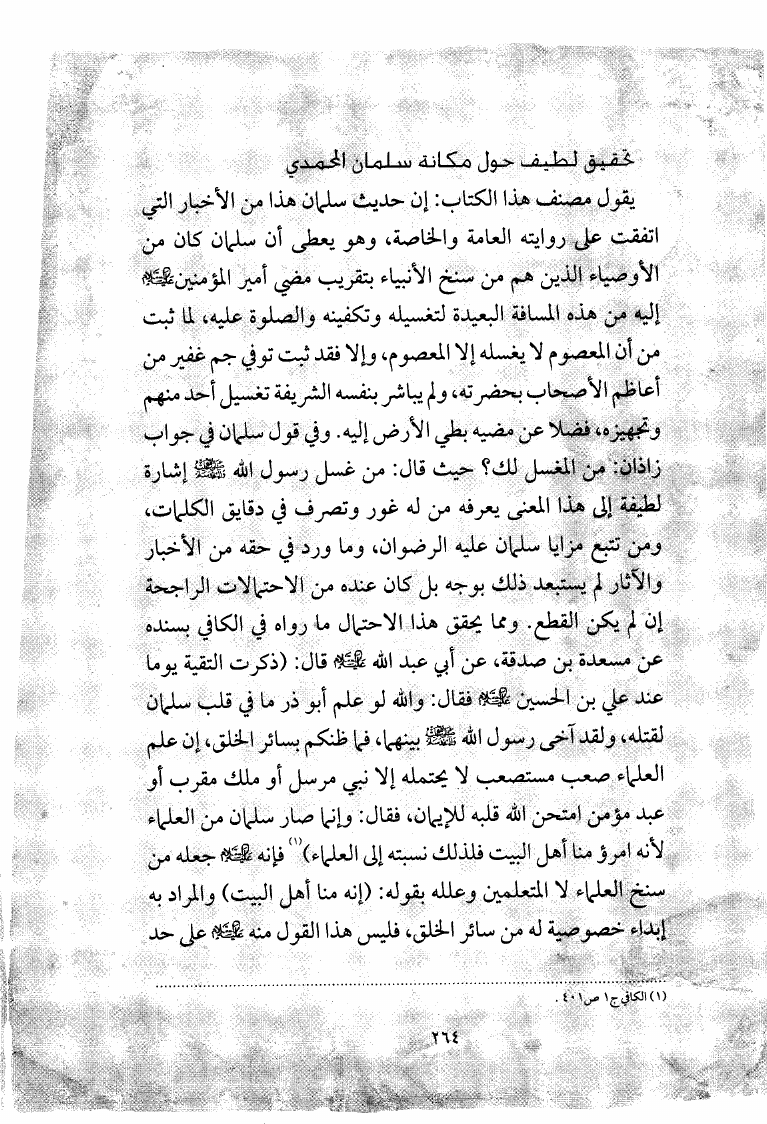 تحقيق لطيف حول مكانة سلمان المحمدي
يقول مصنف هذا الكتاب: إن حديث سلمان هذا من الأخبار التي
اتفقت على روايته العامة والخاصة، وهو يعطى أن سلمان كان من
الأوصياء الذين هم من سنخ الأنبياء بتقريب مضي أمير المؤمنين عليه السلام
إليه من هذه المسافة البعيدة لتغسيله وتكفينه والصلوة عليه، لما ثبت
من أن المعصوم لا يغسله إلا المعصوم، وإلا فقد ثبت توفي جم غفير من
أعاظم الأصحاب بحضرته، ولم يباشر بنفسه الشريفة تغسيل أحد منهم
وتجهيزه، فضلا عن مضيه بطي الأرض إليه. وفي قول سلمان في جواب
زاذان: من المغسل لك؟ حيث قال: من غسل رسول الله ﷺ إشارة
لطيفة إلى هذا المعنى يعرفه من له غور وتصرف في دقايق الكلمات،
ومن تتبع مزايا سلمان عليه الرضوان، وما ورد في حقه من الأخبار
والآثار لم يستبعد ذلك بوجه بل كان عنده من الاحتمالات الراجحة
إن لم يكن القطع. ومما يحقق هذا الاحتمال ما رواه في الكافي بسنده
عن مسعدة بن صدقة، عن أبي عبد الله عليه السلام قال: (ذكرت التقية يوما
عند علي بن الحسين عليه السلام فقال: والله لو علم أبو ذر ما في قلب سلمان
لقتله، ولقد آخى رسول الله ﷺ بينهما، فما ظنكم بسائر الخلق، إن علم
العلماء صعب مستصعب لا يحتمله إلا نبي مرسل أو ملك مقرب أو
عبد مؤمن امتحن الله قلبه للإيمان، فقال: وإنما صار سلمان من العلماء
لأنه امرؤ منا أهل البيت فلذلك نسبته إلى العلماء)(١) فإنه عليه السلام جعله من
سنخ العلماء لا المتعلمين وعلله بقوله: (إنه منا أهل البيت) والمراد به
إبداء خصوصية له من سائر الخلق، فليس هذا القول منه عليه السلام على حد
(١) الكافي ج١ ص٤٠١ .
٢٦٤